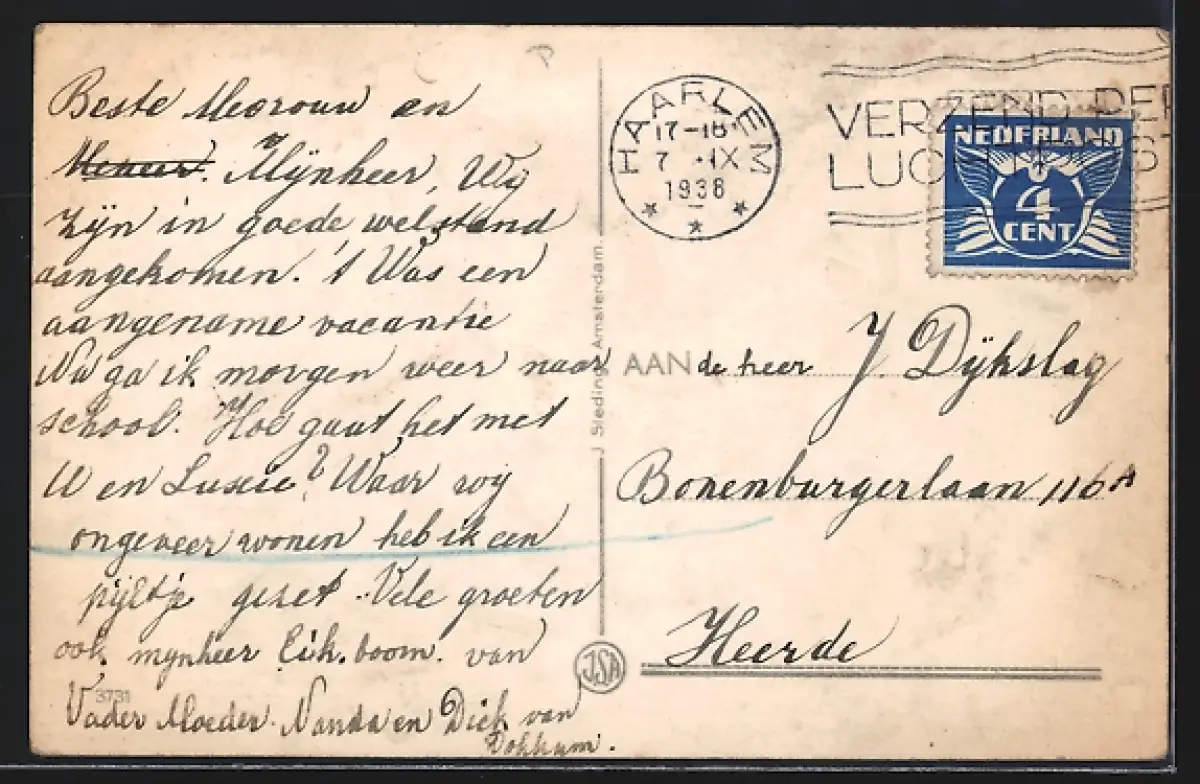 Beste Mevrouw en
Meneer. Mijnheer, Wij
zijn in goede welstand
aangekomen. 't Was een
aangename vacantie
Nu ga ik morgen weer naar
school. Hoe gaat het met
U en Lussie? Waar wij
ongeveer wonen heb ik een
pijltje gezet. Vele groeten
ook mynheer Eik.boom. van
3731
Vader Moeder. Nanda en Dick van
HAARLEM
17-18
7 .IX
1938
VERZEND PER
LUC
NEDERLAND
4
CENT
J Sleding Amsterdam
AAN de heer J. Dijkslag
Bonenburgerlaan 116A
Heerde
JSA